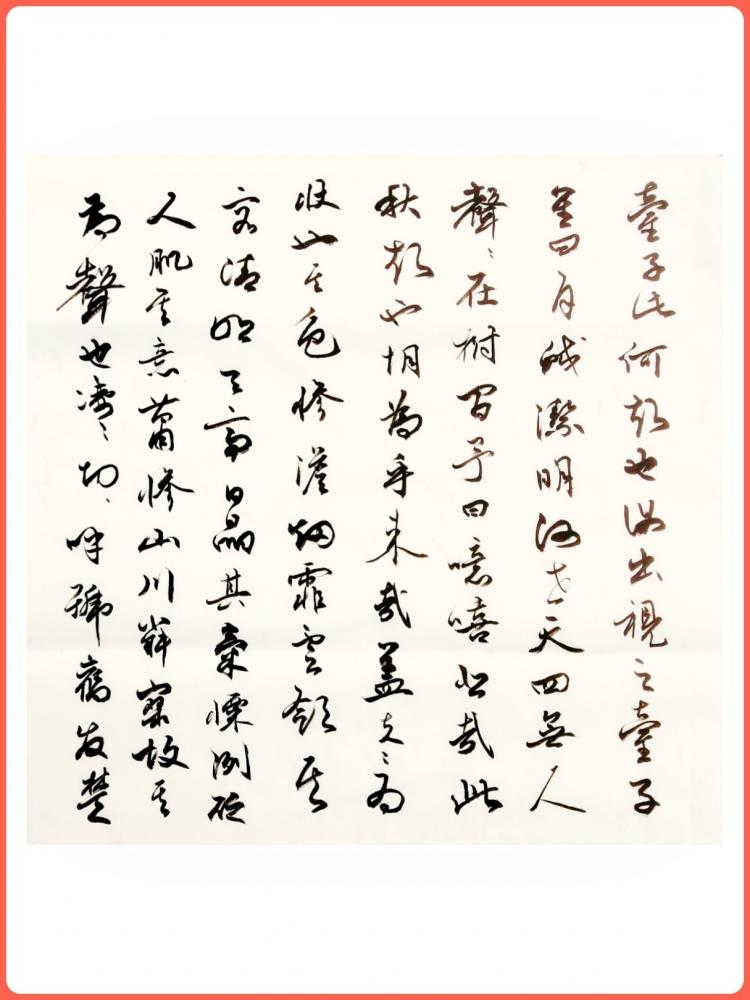 童子此何聲也汝出視之童子
星曰月皎潔明河在天四無人
聲〻在樹間予曰噫嘻悲哉此
秋聲也胡為乎來哉蓋夫〻為
狀也其色慘淡烟霏雲斂其
容清明天高日晶其氣慄冽砭
人肌其意蕭慘山川寂寥故其
為聲也淒〻切〻呼號奮發